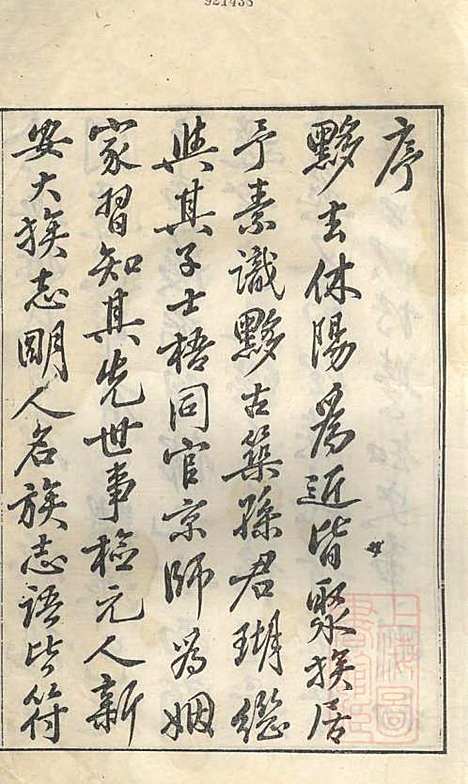 921438
序
黟去休陽爲近皆聚族居
予素識黟古築孫君瑚繼
與其子士梧同官京師爲姻
家習知其先世事檢元人新
安大族志明人名族志語皆符